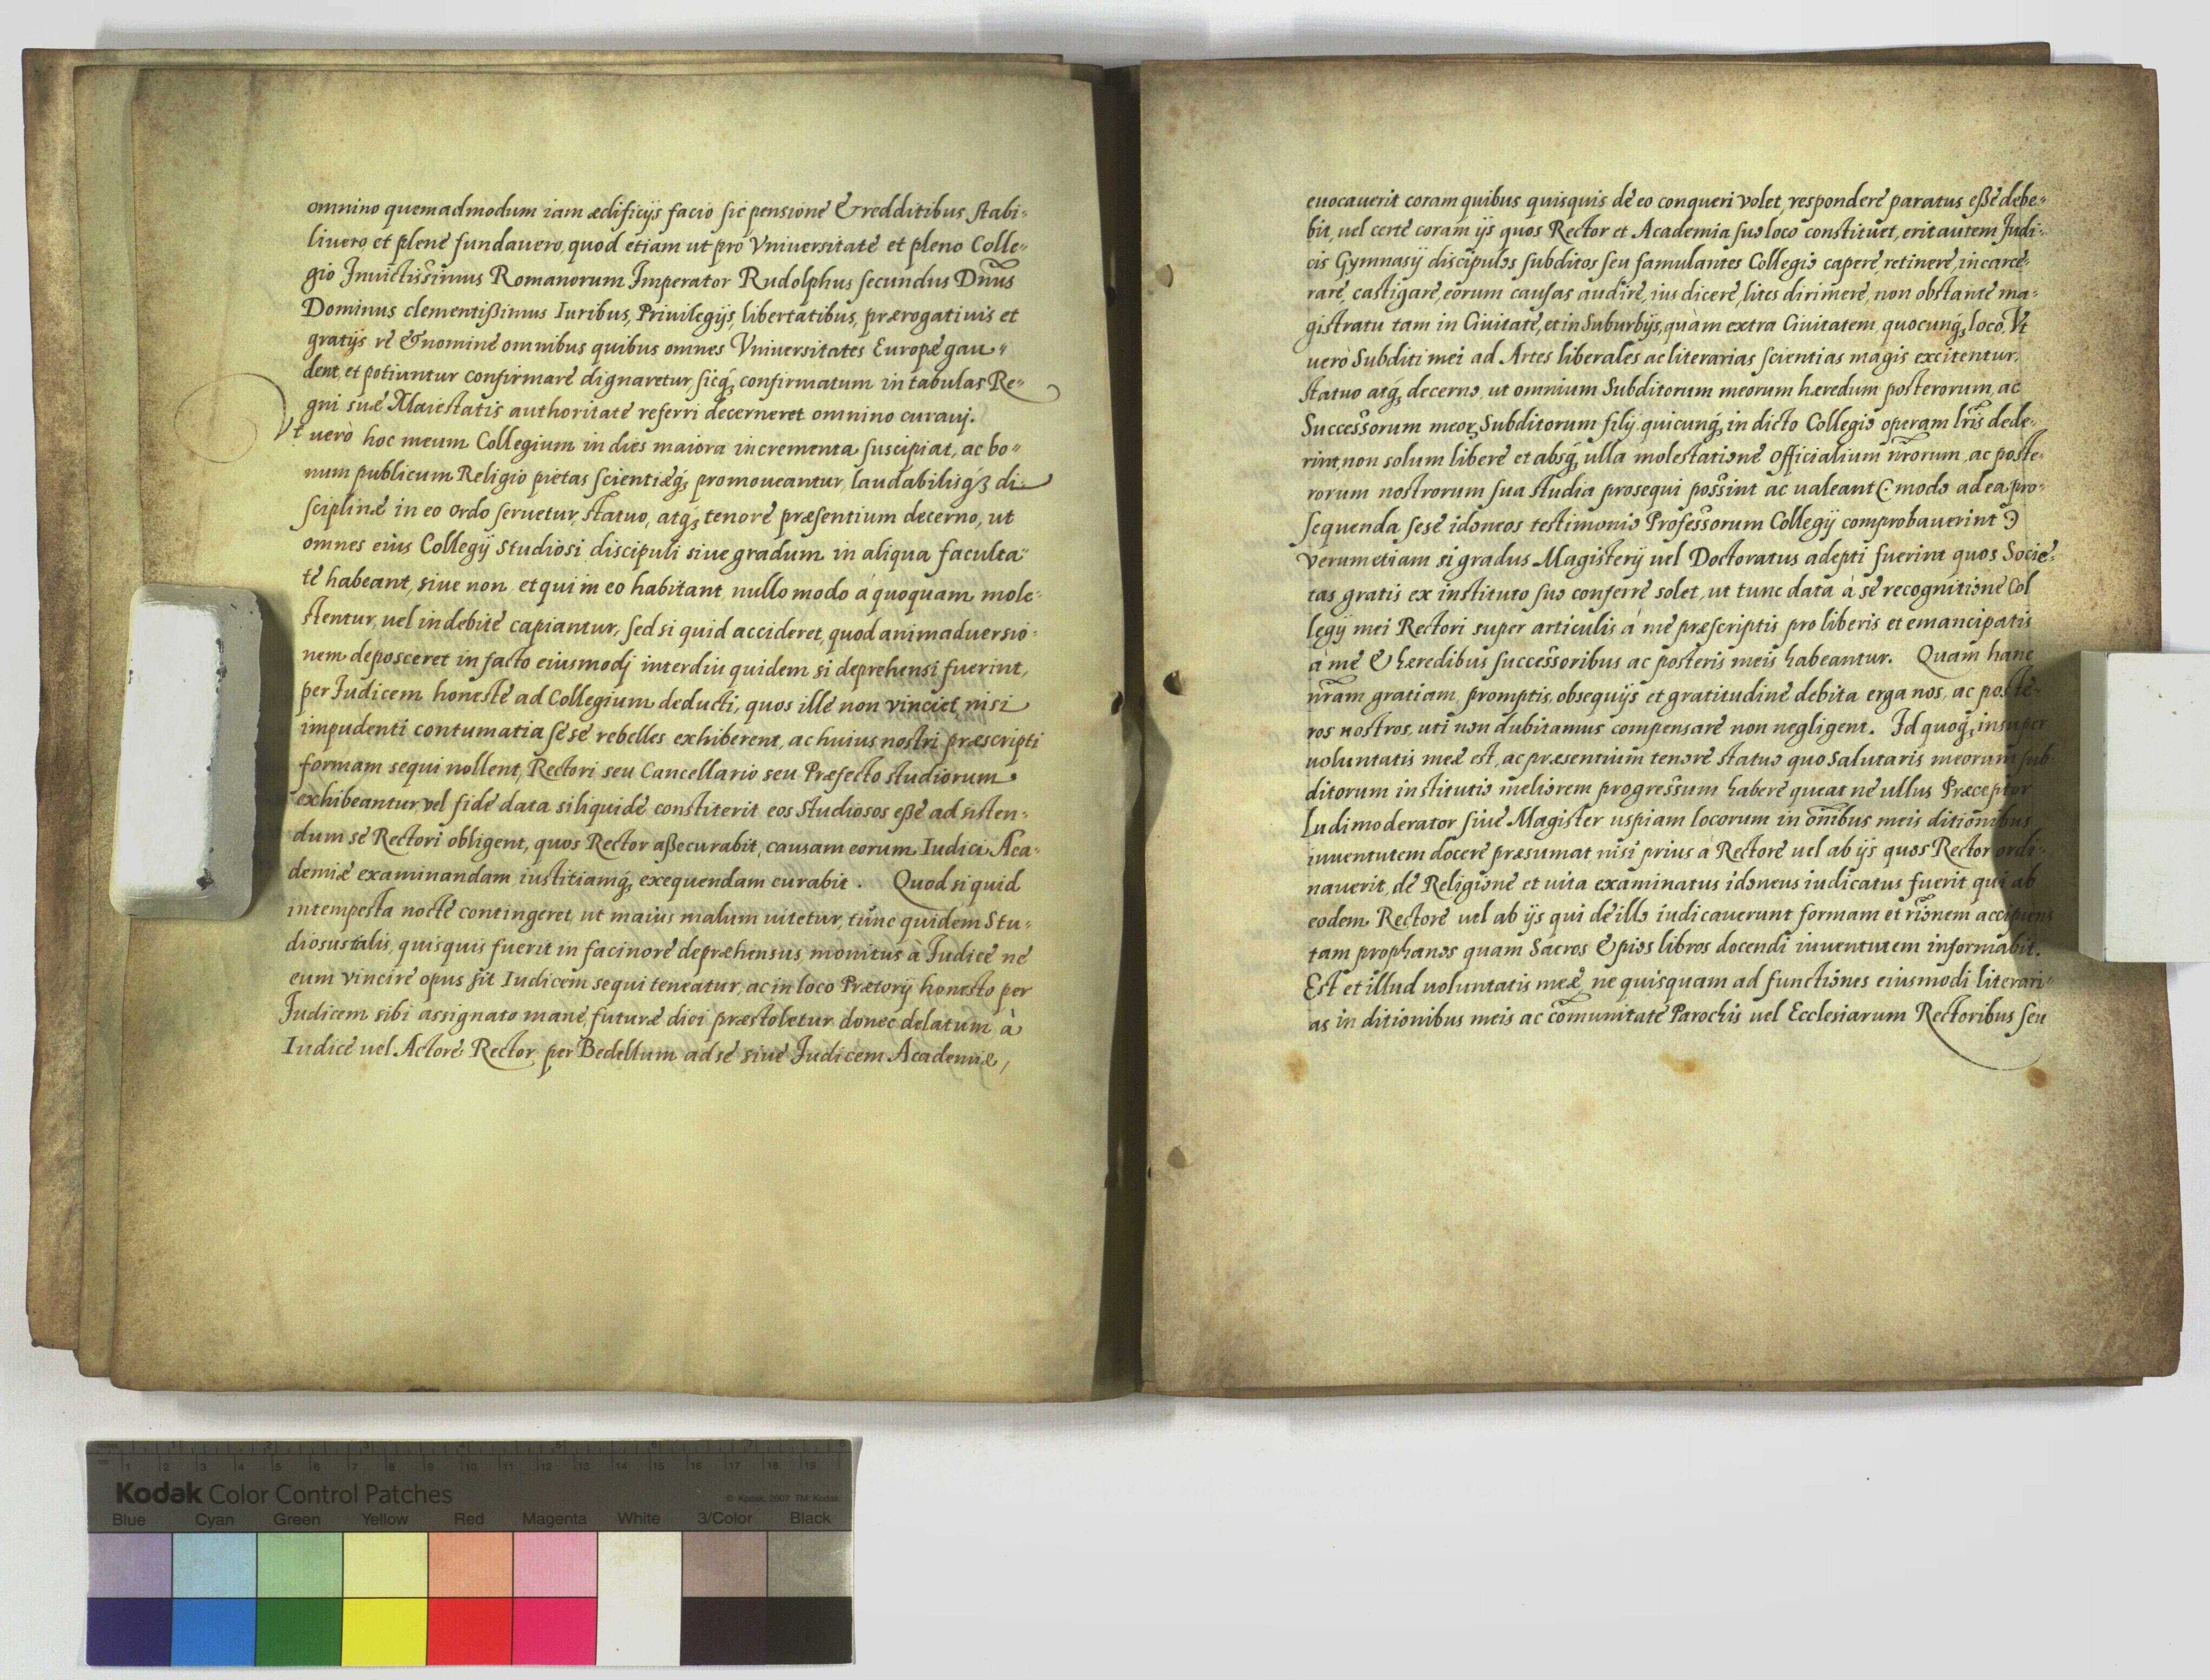 omnino quemadmodum iam ædificijs facio sic pensione & redditibus stabi-
liuero et plene fundauero, quod etiam ut pro Vniuersitate et pleno Colle-
gio Inuictissimus Romanorum Imperator Rudolphus secundus Dnus
Dominus clementißimus Iuribus, Priuilegijs, libertatibus, prærogatiuis et
gratijs re & nomine omnibus quibus omnes Vniuersitates Europę gau-
dent, et potiuntur confirmare dignaretur, sicq; confirmatum in tabulas Re-
gni suę Maiestatis authoritate referri decerneret omnino curaui.
Vt uerò hoc meum Collegium in dies maiora incrementa suscipiat, ac bo-
num publicum Religio pietas scientięq; promoueantur, laudabilisq; di-
sciplinę in eo ordo seruetur, statuo, atq; tenore præsentium decerno, ut
omnes eius Collegij studiosi discipuli siue gradum in aliqua faculta-
te habeant, siue non et qui in eo habitant nullo modo á quoquam mole-
stentur, uel indebite capiantur, sed si quid accideret, quod animaduersio-
nem deposceret in facto eiusmodj interdiu quidem si deprehensi fuerint,
per Iudicem honeste ad Collegium deducti, quos ille non vinciet, nisi
impudenti contumatia sese rebelles exhiberent, ac huius nostri præscripti
formam sequi nollent, Rectori seu Cancellario seu Præfecto studiorum
exhibeantur vel fide data si liquide constiterit eos studiosos eße ad sisten-
dum se Rectori obligent, quos Rector aßecurabit, causam eorum Iudici Aca-
demię examinandam iustitiamq; exequendam curabit. Quod si quid
intempesta nocte contingeret, ut maius malum uitetur, tunc quidem Stu-
diosus talis, quisquis fuerit in facinore depræhensus, monitus à Iudice ne
eum vincire opus sit Iudicem sequi teneatur, ac in loco Prætorij honesto per
Iudicem sibi assignato mane futurę diei præstoletur donec delatum à
Iudice uel Actore Rector per Bedellum ad se siue Iudicem Academię,
euocauerit coram quibus quisquis de eo conqueri volet, respondere paratus eße debe-
bit, uel certe coram ijs quos Rector et Academia suo loco constituet, erit autem Judi-
cis Gymnasij discipulos subditos seu famulantes Collegio capere retinere, incarce-
rare, castigare, eorum causas audire, ius dicere, lites dirimere, non obstante ma-
gistratu tam in Ciuitate, et in Suburbijs, quàm extra Ciuitatem, quocunq; loco, Vt
uerò Subditi mei ad Artes liberales ac literarias scientias magis excitentur,
statuo atq; decerno, ut omnium Subditorum meorum hæredum posterorum, ac
Successorum meor. Subditorum filij quicunq; in dicto Collegio operam lris dede-
rint, non solum libere et absq; ulla molestatione Officialium nrorum, ac poste-
rorum nostrorum sua studia prosequi possint ac ualeant (modo ad ea pro-
sequenda sese idoneos testimonio Professorum Collegij comprobauerint)
verum etiam si gradus Magisterij uel Doctoratus adepti fuerint quos Socie-
tas gratis ex instituto suo conferre solet, ut tunc data à se recognitione Col
legij mei Rectori super articulis à me præscriptis pro liberis et emancipatis
à me & hæredibus successoribus ac posteris meis habeantur. Quam hanc
nram gratiam, promptis obsequijs et gratitudine debita erga nos, ac poste-
ros nostros, uti non dubitamus compensare non negligent. Id quoq; insuper
uoluntatis meę est, ac præsentium tenore statuo quo salutaris meorum sub
ditorum institutio meliorem progressum habere queat ne ullus Præceptor
Ludimoderator siue Magister uspiam locorum in omibus meis ditionibus
iuuentutem docere præsumat, nisi prius à Rectore uel ab ijs quos Rector ordi-
nauerit, de Religione et uita examinatus idoneus iudicatus fuerit, qui ab
eodem Rectore uel ab ijs qui de illo iudicauerunt formam et rionem accipiens
tam prophanos quam Sacros & pios libros docendi iuuentutem informabit.
Est et illud uoluntatis meę, ne quisquam ad functiones eiusmodi literari-
as in ditionibus meis ac comunitate Parochis uel Ecclesiarum Rectoribus seu
Kodak Color Control Patches
© Kodak, 2007 TM: Kodak
Blue Cyan Green Yellow Red Magenta White 3/Color Black